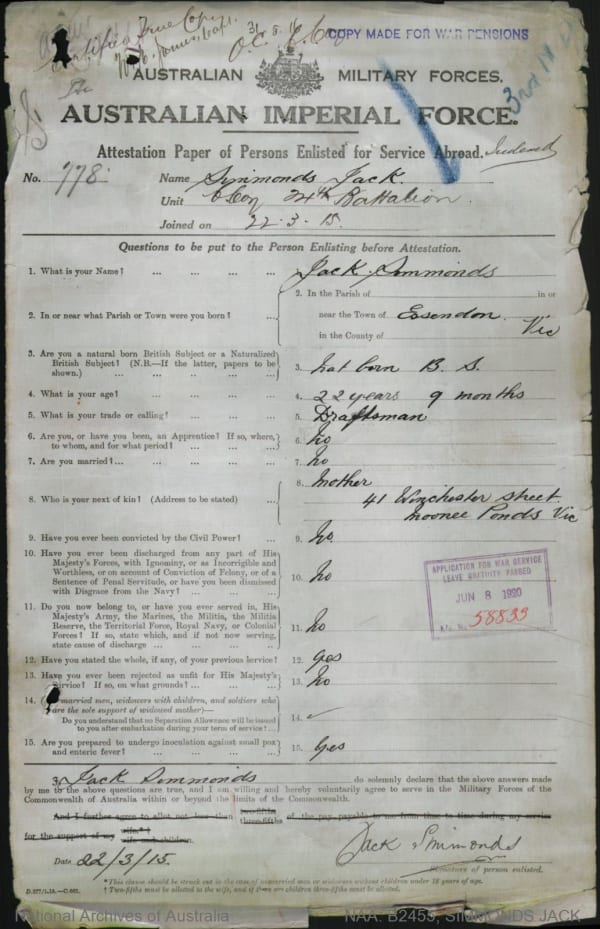 Certified True Copy
31 5 16
O.C.
COPY MADE FOR WAR PENSIONS
AUSTRALIAN MILITARY FORCES.
AUSTRALIAN IMPERIAL FORCE.
Attestation Paper of Persons Enlisted for Service Abroad. Indexed
No. 778 Name Simmonds Jack.
Unit C Coy 24th Battalion.
Joined on 22.3.15.
Questions to be put to the Person Enlisting before Attestation.
1. What is your Name? ... ... ... ... Jack Simmonds
2. In or near what Parish or Town were you born? ... 2. In the Parish of in or
near the Town of Essendon.
in the County of Vic
3. Are you a natural born British Subject or a Naturalized
British Subject? (N.B.—If the latter, papers to be
shown.) ... ... ... ... ... 3. nat born B. S.
4. What is your age? ... ... ... ... 4. 22 years 9 months
5. What is your trade or calling? ... ... ... 5. Draftsman
6. Are you, or have you been, an Apprentice? If so, where,
to whom, and for what period? ... ... ... 6. no
7. Are you married?... ... ... ... ... 7. no
8. Who is your next of kin? (Address to be stated) ... 8. Mother
41 Winchester street
Moonee Ponds Vic
9. Have you ever been convicted by the Civil Power? ... 9. No
10. Have you ever been discharged from any part of His
Majesty's Forces, with Ignominy, or as Incorrigible and
Worthless, or on account of Conviction of Felony, or of a
Sentence of Penal Servitude, or have you been dismissed
with Disgrace from the Navy? ... ... ... 10. No
APPLICATION FOR WAR SERVICE
LEAVE GRATUITY PASSED
JUN 8 1920
58833
11. Do you now belong to, or have you ever served in, His
Majesty's Army, the Marines, the Militia, the Militia
Reserve, the Territorial Force, Royal Navy, or Colonial
Forces? If so, state which, and if not now serving,
state cause of discharge ... ... ... ... 11. no
12. Have you stated the whole, if any, of your previous service? 12. yes
13. Have you ever been rejected as unfit for His Majesty's
Service? If so, on what grounds? ... ... ... 13. no
14. married men, widowers with children, and soldiers who
are the sole support of widowed mother)—
Do you understand that no Separation Allowance will be issued
to you after embarkation during your term of service? ... 14.
15. Are you prepared to undergo inoculation against small pox
and enteric fever? ... ... ... ... 15. Yes
I, Jack Simmonds do solemnly declare that the above answers made
by me to the above questions are true, and I am willing and hereby voluntarily agree to serve in the Military Forces of the
Commonwealth of Australia within or beyond the limits of the Commonwealth.
And I further agree to allot not less than two-fifths three-fifths of the pay payable to me from time to time during my service
for the support of my wife* wife and children.
Jack Simmonds
Date 22/3/15. Signature of person enlisted.
*This clause should be struck out in the case of unmarried men or widowers without children under 18 years of age.
D.377/1.15.—C.661. † Two-fifths must be allotted to the wife, and if there are children three-fifths must be allotted.
National Archives of Australia NAA: B2455, SIMMONDS JACK